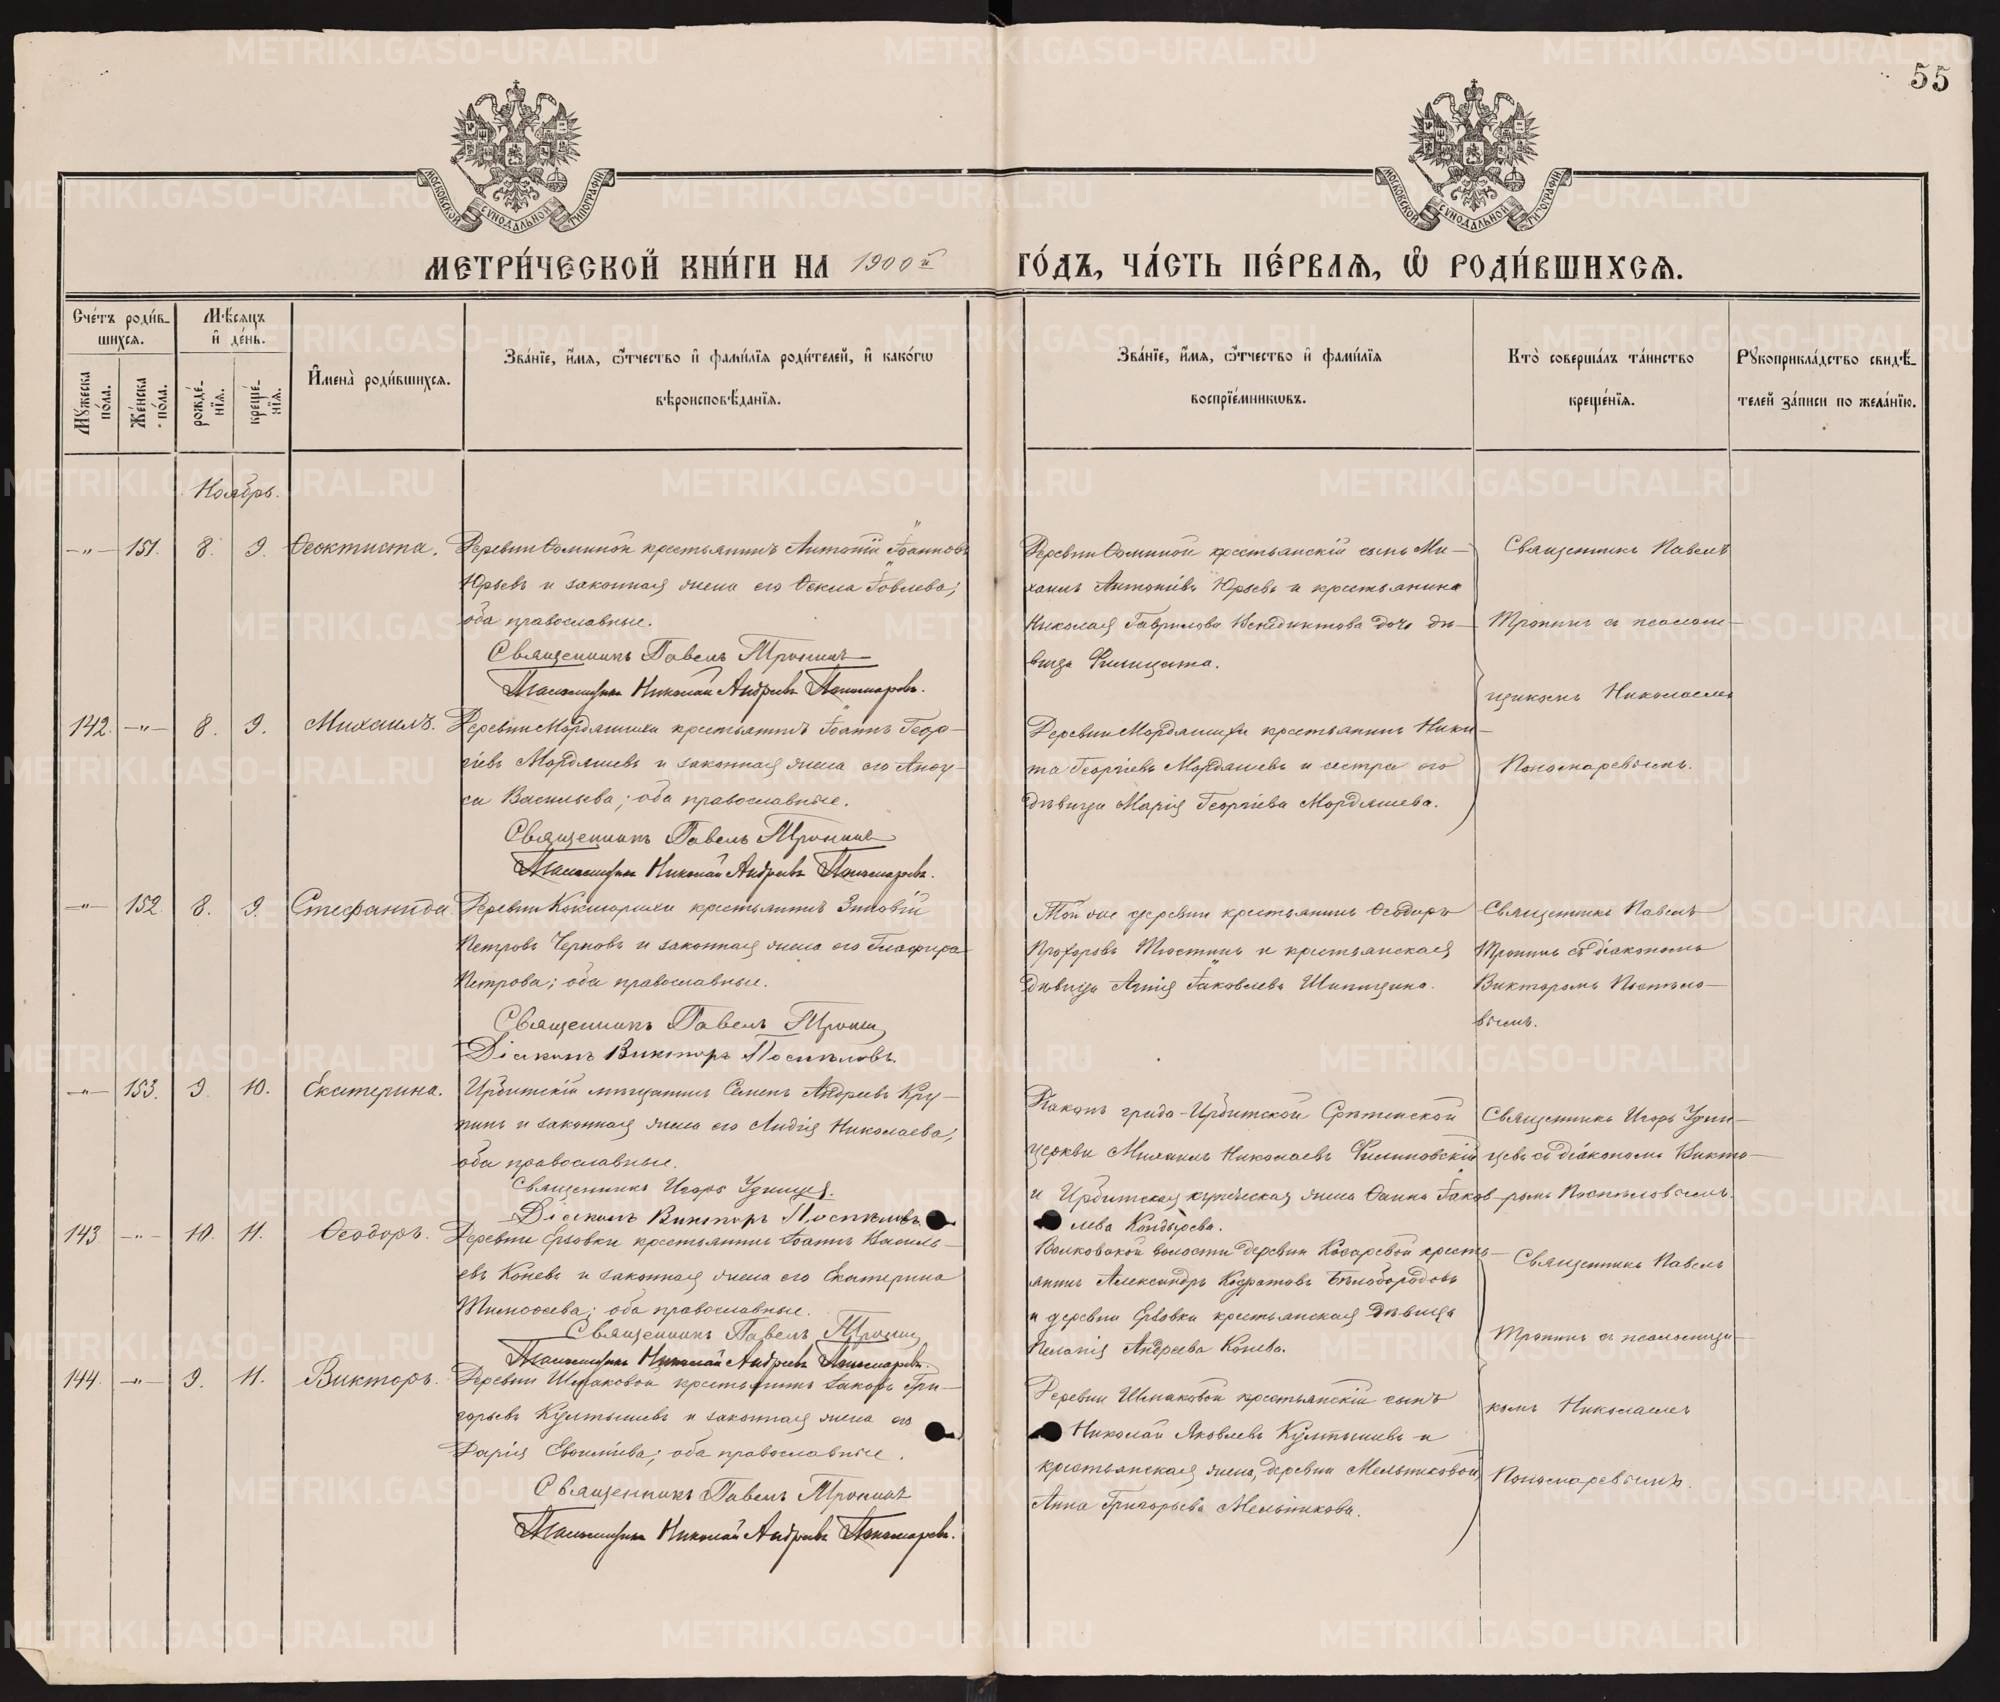 55
МОСКОВСКОЙ СѴНОДАЛЬНОЙ ТИПОГРАФІИ
МОСКОВСКОЙ СѴНОДАЛЬНОЙ ТИПОГРАФІИ
МЕТРИ́ЧЕСКОЙ КНИ́ГИ НА 1900й ГО́ДЪ, ЧА́СТЬ ПЕ́РВАѦ, Ѡ҆ РОДИ́ВШИХСѦ.
Сче́тъ роди́в-
шихсѧ.
Мꙋ́жеска по́ла.
Же́нска по́ла.
Мѣ́сѧцъ
и҆ де́нь.
рожде́-
нїѧ.
креще́-
нїѧ.
И҆мена̀ роди́вшихсѧ.
Зва́нїе, и҆́мѧ, ѻ҆́тчество и҆ фами́лїѧ роди́телей, и҆ како́гѡ
вѣроисповѣ́данїѧ.
Зва́нїе, и҆́мѧ, ѻ҆́тчество и҆ фами́лїѧ
воспрїе́мникѡвъ.
Кто̀ соверша́лъ та́инство
креще́нїѧ.
Рꙋкоприкла́дство свидѣ́-
телей за́писи по жела́нїю.
Ноябрь.
—"— 151. 8. 9. Ѳеоктиста.
Деревни Ѳоминой крестьянинъ Антоній Іоанновъ
Юрьевъ и законная жена его Ѳекла Іовлева;
оба православные.
Священникъ Павелъ Тронинъ
Псаломщикъ Николай Андреевъ Пономаревъ.
Деревни Ѳоминой крестьянскій сынъ Ми-
хаилъ Антоніевъ Юрьевъ и крестьянина
Николая Гаврилова Венедиктова дочь дѣ-
вица Филицата.
Священникъ Павелъ
Тронинъ съ псалом-
щикомъ Николаемъ
Пономаревымъ.
142. —"— 8. 9. Михаилъ.
Деревни Мордяшихи крестьянинъ Іоаннъ Геор-
гіевъ Мордяшевъ и законная жена его Анфу-
са Васильева; оба православные.
Священникъ Павелъ Тронинъ
Псаломщикъ Николай Андреевъ Пономаревъ.
Деревни Мордяшихи крестьянинъ Ники-
та Георгіевъ Мордяшевъ и сестра его
дѣвица Марія Георгіева Мордяшева.
—"— 152. 8. 9. Стефанида.
Деревни Кокшарихи крестьянинъ Зиновій
Петровъ Черновъ и законная жена его Глафира
Петрова; оба православные.
Священникъ Павелъ Тронин
Діаконъ Викторъ Поспѣловъ.
Той же деревни крестьянинъ Ѳеодоръ
Прохоровъ Тюстинъ и крестьянская
дѣвица Агнія Іаковлева Шипицина.
Священникъ Павелъ
Тронинъ съ діакономъ
Викторомъ Поспѣло-
вымъ.
—"— 153. 9. 10. Екатерина.
Ирбитскій мѣщанинъ Семенъ Андреевъ Кру-
пинъ и законная жена его Лидія Николаева;
оба православные.
Священникъ Игорь Удинцев.
Діаконъ Викторъ Поспѣловъ.
Діаконъ градо-Ирбитской Срѣтенской
церкви Михаилъ Николаевъ Филиповскій
и Ирбитская купеческая жена Фаина Іаков-
лева Кондырева.
Священникъ Игорь Удин-
цевъ съ діакономъ Викто-
ромъ Поспѣловымъ.
143. —"— 10. 11. Ѳеодоръ.
Деревни Ерзовки крестьянинъ Іоаннъ Василь-
евъ Коневъ и законная жена его Екатерина
Тимоѳеева; оба православные.
Священникъ Павелъ Тронин
Псаломщикъ Николай Андреевъ Пономаревъ.
Волковской волости деревни Косаревой кресть-
янинъ Александръ Кодратовъ Бѣлобородовъ
и деревни Ерзовки крестьянская дѣвица
Пелагія Андреева Конева.
Священникъ Павелъ
Тронинъ съ псаломщи-
комъ Николаемъ
Пономаревымъ.
144. —"— 9. 11. Викторъ.
Деревни Шмаковой крестьянинъ Іаковъ Гри-
горьевъ Култышевъ и законная жена его
Дарія Евоиміева; оба православные.
Священникъ Павелъ Тронинъ
Псаломщикъ Николай Андреевъ Пономаревъ.
Деревни Шмаковой крестьянскій сынъ
Николай Яковлевъ Култышевъ и
крестьянская жена, деревни Мельниковой
Анна Григорьева Мельникова.
METRIKI.GASO-URAL.RU